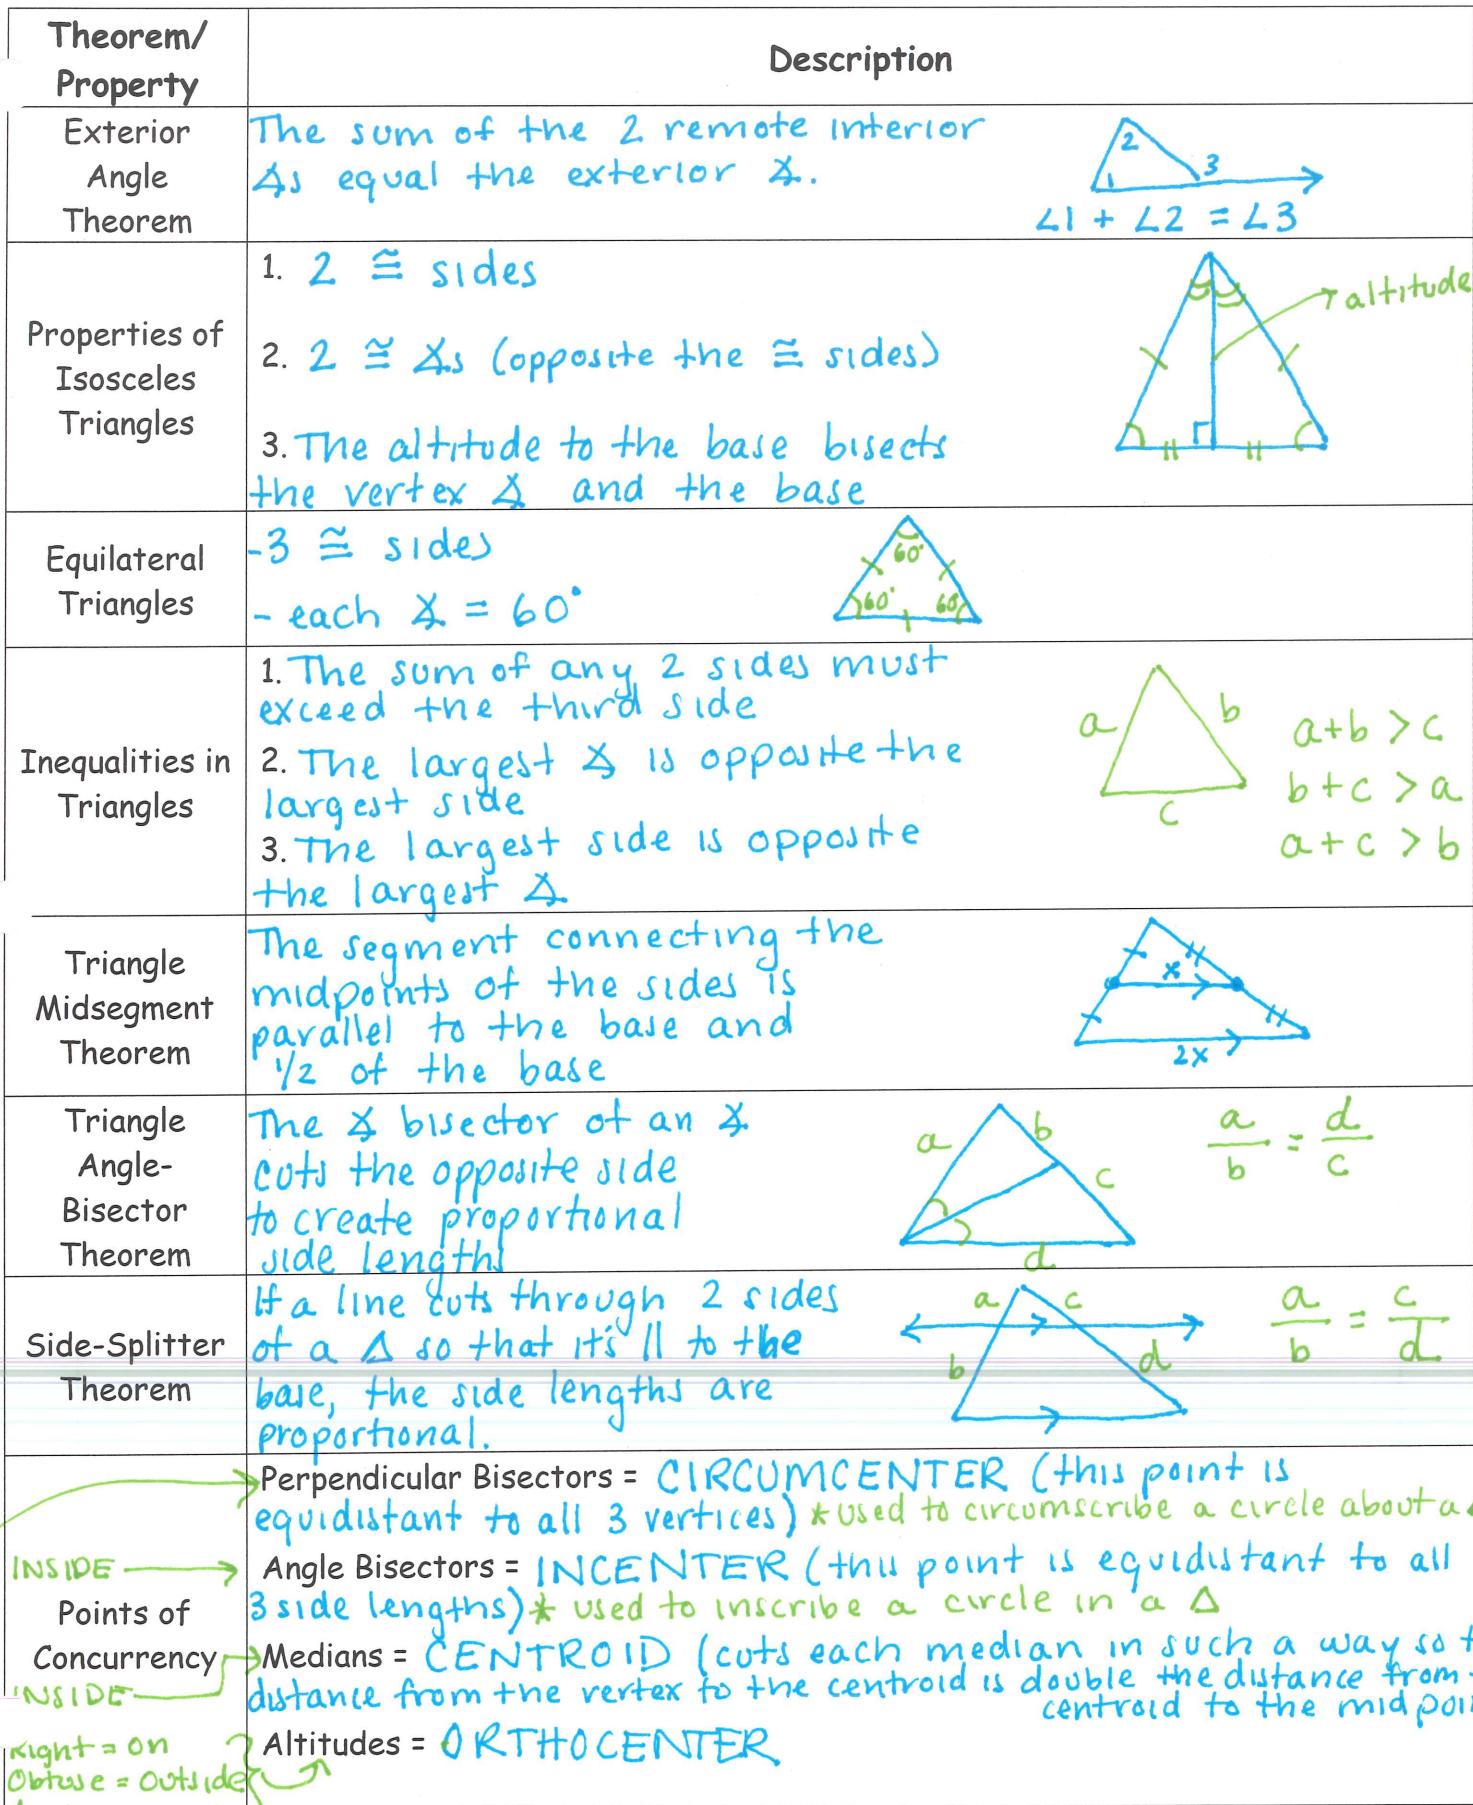 Theorem/
Property
Description
Exterior
Angle
Theorem
The sum of the 2 remote interior
∡s equal the exterior ∡.
2
1
3
∠1 + ∠2 = ∠3
Properties of
Isosceles
Triangles
1. 2 ≅ sides
2. 2 ≅ ∡s (opposite the ≅ sides)
3. The altitude to the base bisects
the vertex ∡ and the base
altitude
Equilateral
Triangles
-3 ≅ sides
- each ∡ = 60°
60°
60°
60°
Inequalities in
Triangles
1. The sum of any 2 sides must
exceed the third side
2. The largest ∡ is opposite the
largest side
3. The largest side is opposite
the largest ∡
a
b
c
a+b > c
b+c > a
a+c > b
Triangle
Midsegment
Theorem
The segment connecting the
midpoints of the sides is
parallel to the base and
1/2 of the base
x
2x
Triangle
Angle-
Bisector
Theorem
The ∡ bisector of an ∡
cuts the opposite side
to create proportional
side lengths
a
b
c
d
a/b = d/c
Side-Splitter
Theorem
If a line cuts through 2 sides
of a Δ so that it's || to the
base, the side lengths are
proportional.
a
c
b
d
a/b = c/d
Points of
Concurrency
Perpendicular Bisectors = CIRCUMCENTER (this point is
equidistant to all 3 vertices) *used to circumscribe a circle about a
INSIDE
Angle Bisectors = INCENTER (this point is equidistant to all
3 side lengths) * used to inscribe a circle in a Δ
INSIDE
Medians = CENTROID (cuts each median in such a way so
distance from the vertex to the centroid is double the distance from
centroid to the
Right = on
Obtuse = outside
Altitudes = ORTHOCENTER